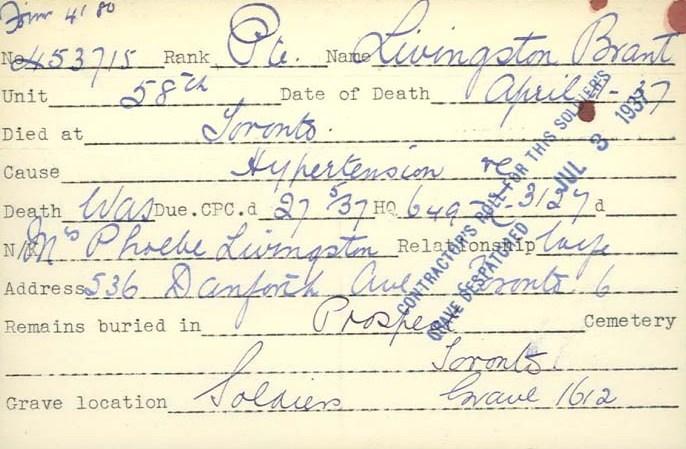 Form 41 80
No 453715 Rank Pte. Name Livingston Brant
Unit 58th Date of Death April - 37
Died at Toronto.
Cause Hypertension
Death Was Due. CPC. d 27 5/37 HQ 649 d
N/K Mrs Phoebe Livingston Relationship Wife
Address 536 Danforth Ave Toronto 6
Remains buried in Prospect Cemetery
Toronto.
Grave location Soldiers Grave 1612
CONTRACTOR'S ROLL FOR THIS SOLDIER'S
GRAVE DESPATCHED JUL 3 1937